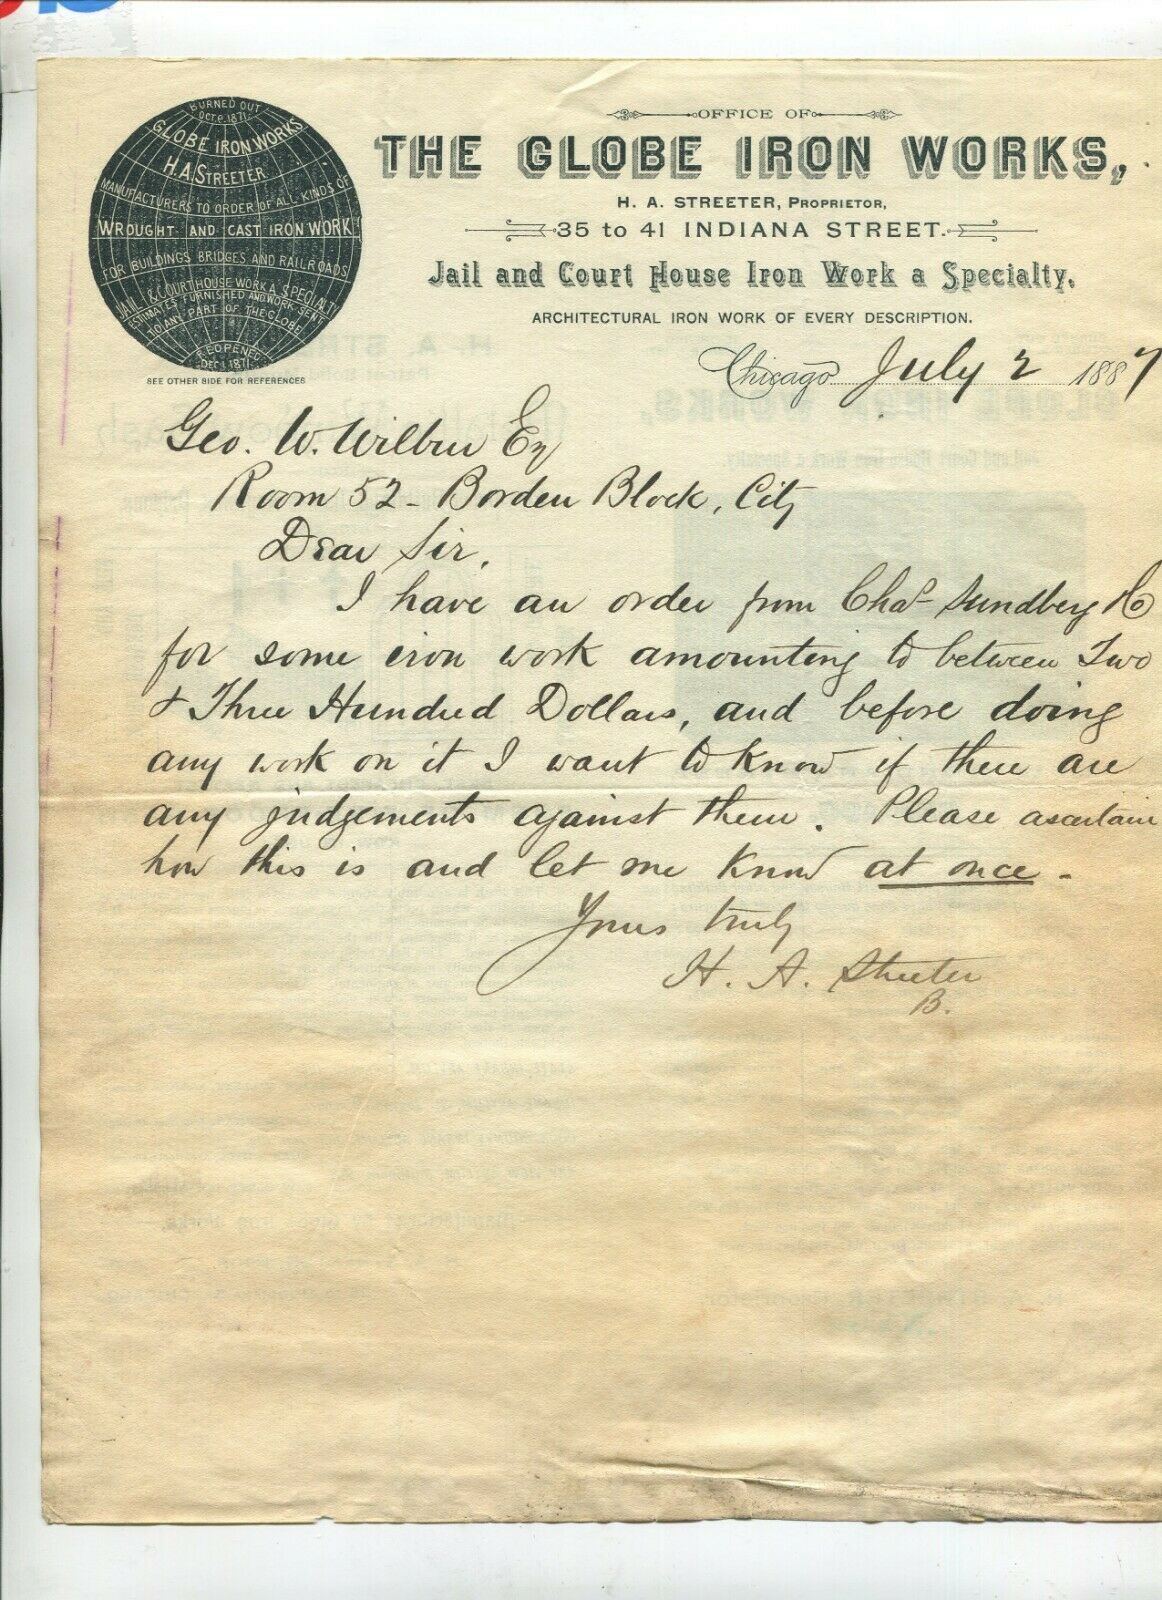 BURNED OUT
OCT. 9. 1871.
GLOBE IRON WORKS
H. A. STREETER
MANUFACTURERS TO ORDER OF ALL KINDS OF
WROUGHT AND CAST IRON WORK
FOR BUILDINGS, BRIDGES AND RAILROADS
JAIL & COURT HOUSE WORK A SPECIALTY
ESTIMATES FURNISHED AND WORK SENT
TO ANY PART OF THE GLOBE
REOPENED
DEC. 1, 1871.
SEE OTHER SIDE FOR REFERENCES
OFFICE OF
THE GLOBE IRON WORKS,
H. A. STREETER, PROPRIETOR,
35 to 41 INDIANA STREET.
Jail and Court House Iron Work a Specialty.
ARCHITECTURAL IRON WORK OF EVERY DESCRIPTION.
Chicago July 2 1887
Geo. W. Wilbur Esq
Room 52 - Borden Block, City
Dear Sir,
I have an order from Chas Sundberg & Co
for some iron work amounting to between Two
& Three Hundred Dollars, and before doing
any work on it I want to know if there are
any judgements against them. Please ascertain
how this is and let me know at once -
Yours truly
H. A. Streeter
B.